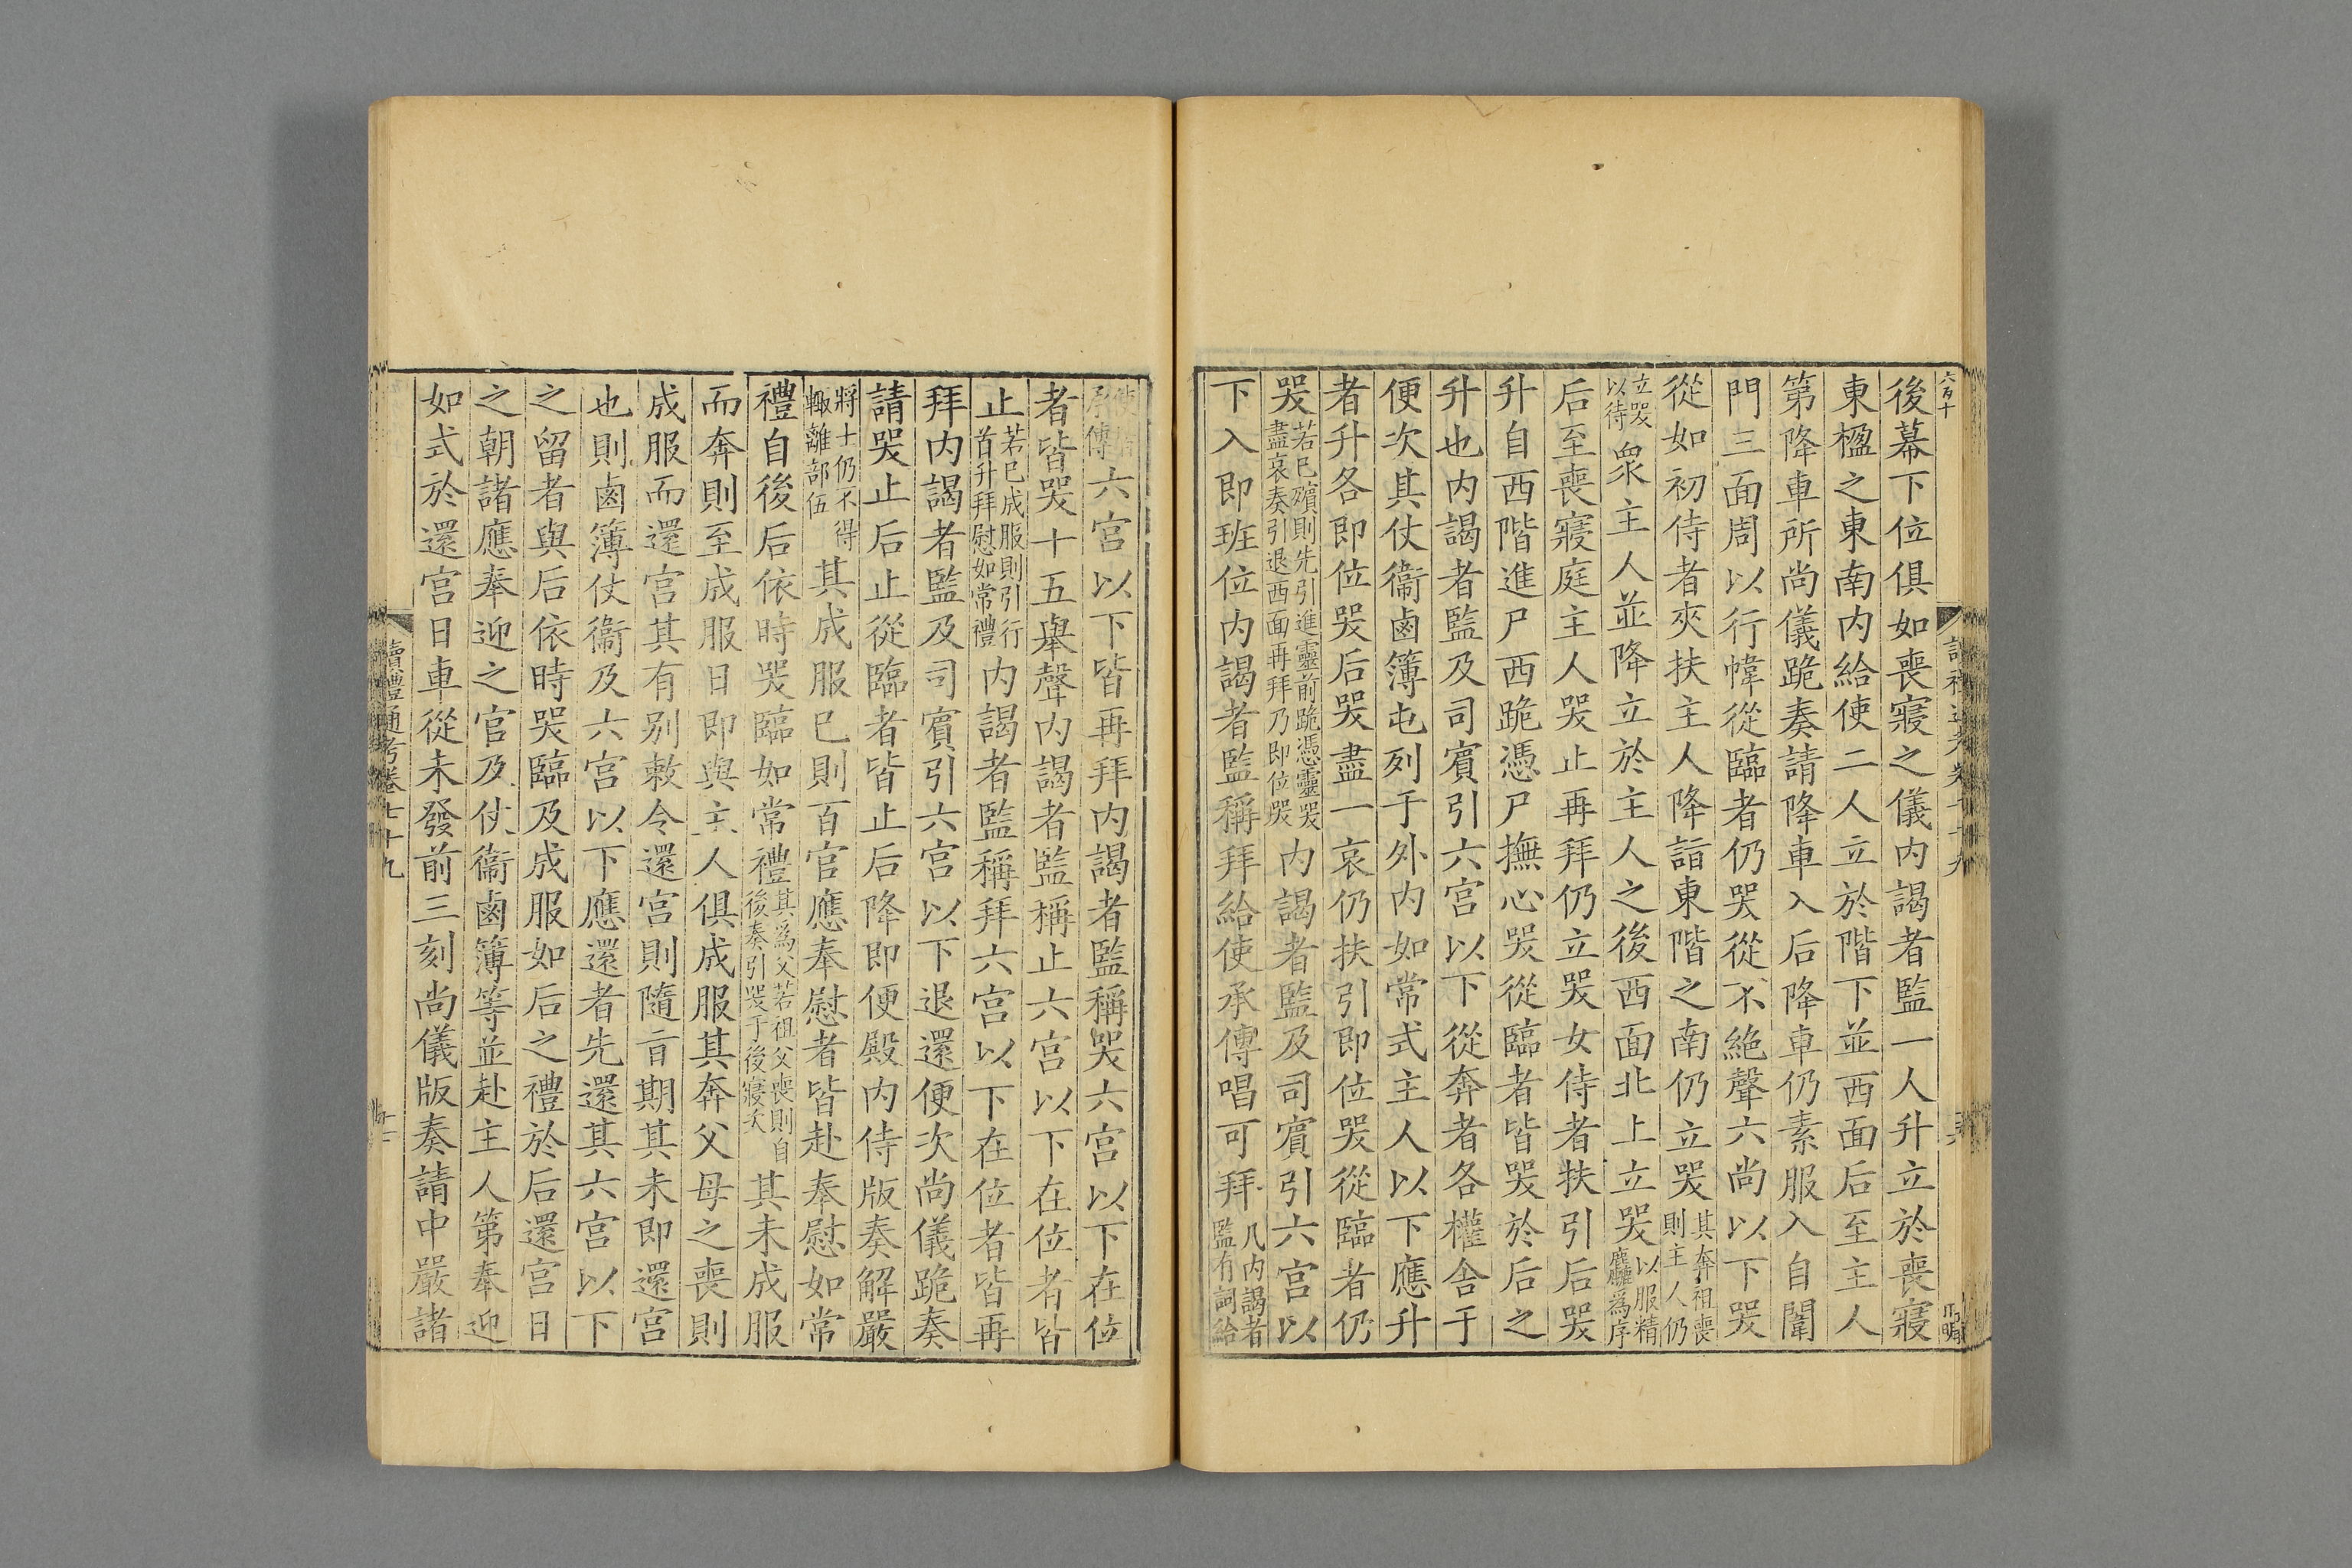 後幕下位俱如喪寢之儀内謁者監一人升立於喪寢
東楹之東南内給使二人立於階下並西面后至主人
第降車所尚儀跪奏請降車入后降車仍素服入自闈
門三面周以行幃從臨者仍哭從不絶聲六尚以下哭
從如初侍者夾扶主人降詣東階之南仍立哭其奔祖喪則主人仍
立哭以待衆主人並降立於主人之後西面北上立哭以服精麤爲序
后至喪寢庭主人哭止再拜仍立哭女侍者扶引后哭
升自西階進尸西跪憑尸撫心哭從臨者皆哭於后之
升也内謁者監及司賓引六宫以下從奔者各權舍于
便次其仗衞鹵簿屯列于外内如常式主人以下應升
者升各即位哭后哭盡一哀仍扶引即位哭從臨者仍
哭若已殯則先引進靈前跪憑靈哭盡哀奏引退西面再拜乃即位哭内謁者監及司賓引六宫以
下入即班位内謁者監稱拜給使承傳唱可拜凡内謁者監有詞給
承傳六宫以下皆再拜内謁者監稱哭六宫以下在位
者皆哭十五舉聲内謁者監稱止六宫以下在位者皆
止若已成服則引行首升拜慰如常禮内謁者監稱拜六宫以下在位者皆再
拜内謁者監及司賓引六宫以下退還便次尚儀跪奏
請哭止后止從臨者皆止后降即便殿内侍版奏解嚴
將士仍不得輙離部伍其成服已則百官應奉慰者皆赴奉慰如常
禮自後后依時哭臨如常禮其爲父若祖父喪則自後奏引哭于後寢天其未成服
而奔則至成服日即與主人俱成服其奔父母之喪則
成服而還宫其有别敕令還宫則隨㫖期其未即還宫
也則鹵簿仗衞及六宫以下應還者先還其六宫以下
之留者與后依時哭臨及成服如后之禮於后還宫日
之朝諸應奉迎之官及仗衞鹵簿等並赴主人第奉迎
如式於還宫日車從未發前三刻尚儀版奏請中嚴諸
讀禮通考卷七十九